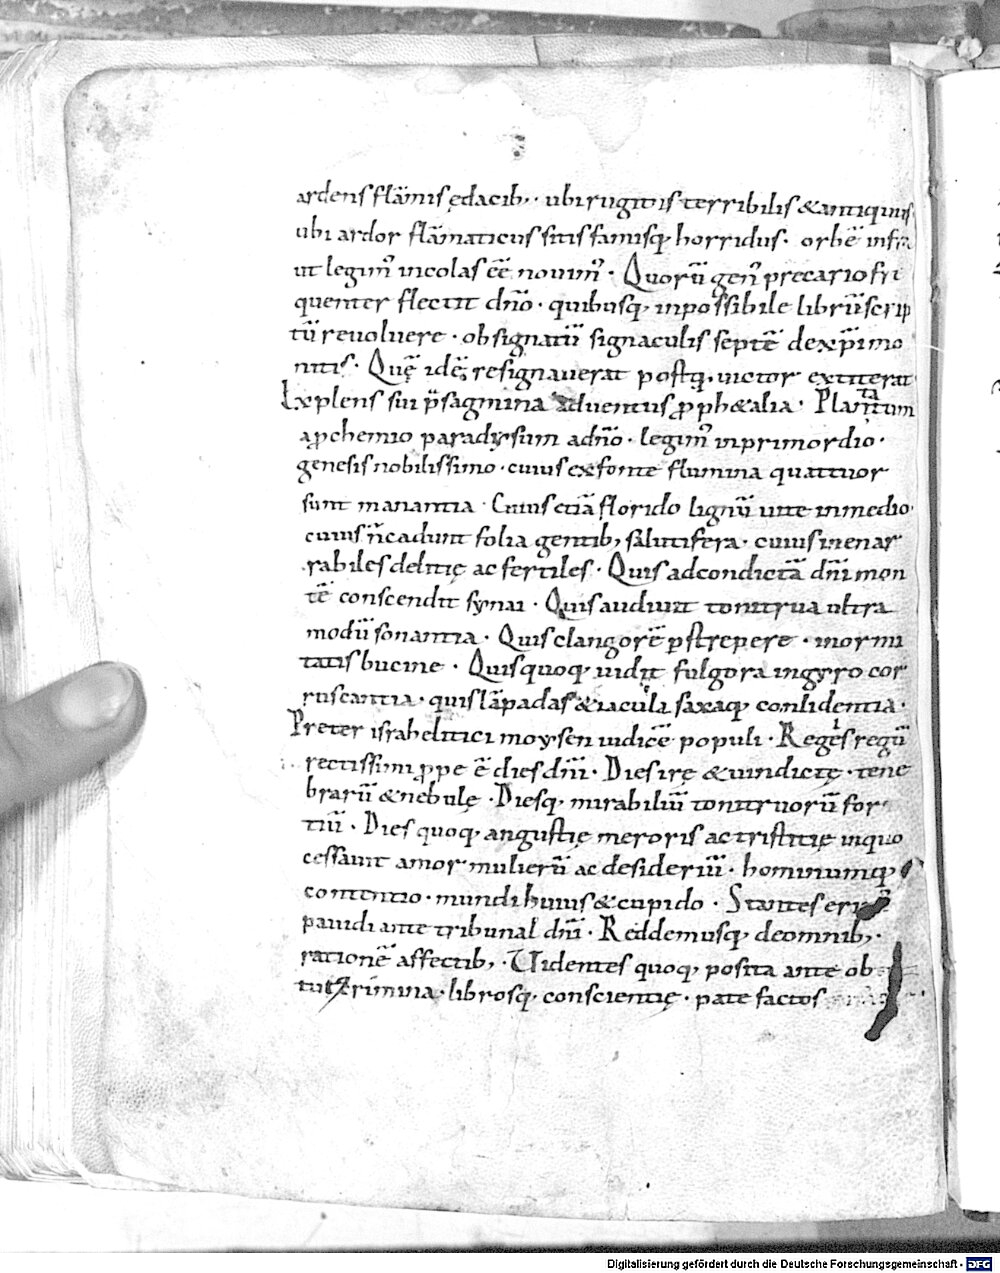 ardens flāmis ędacib; · ubi rugitus terribilis & antiquus
ubi ardor flāmaticus sitis famisq; horridus · orbē infra
ut legim᷒ incolas eē novim᷒ · Quorū gen᷒ precario fri
quenter flectit dn̄o · quibusq; inpossibile librū scrip
tū revolvere · obsignatū signaculis septē dexp̄imo
nitis · Quę idē resignaverat postq; victor extiterat
Explens sui p̄sagmina adventus ꝓph&alia · Plantatum
a ꝓchemio paradysum a dn̄o · legim᷒ in primordio ·
genesis nobilissimo · cuius ex fonte flumina quattuor
sunt manantia · Cuius etiā florido lignū vite in medio
cuius n̄ cadunt folia gentib; salutifera · cuius inenar
rabiles delitię ac fertiles · Quis ad condictā dn̄i mon
tē conscendit synai · Quis audiuit tonitrua ultra
modū sonantia · Quis clangorē ꝑstrepere · inormi
tatis bucine · Quis quoq; vidit fulgora in gyro cor
ruscantia · quis lāpadas & iacula saxaq; conlidentia ·
Preter israhelitici moysen iudicē populi · Reges regū
rectissimi ꝓpe ē dies dn̄i · Dies irę & vindictę · tene
brarū & nebulę · Diesq; mirabiliū tonitruorū for
tiū · Dies quoq; angustię meroris ac tristitię in quo
cessavit amor mulierū ac desideriū · hominumq;
contentio · mundi huius & cupido · Stantes
pavidi ante tribunal dn̄i · Reddemusq; de omnib; ·
rationē affectib; · Videntes quoq; posita ante ob
tut crimina · librosq; conscientię · pate factos
Digitalisierung gefördert durch die Deutsche Forschungsgemeinschaft - DFG